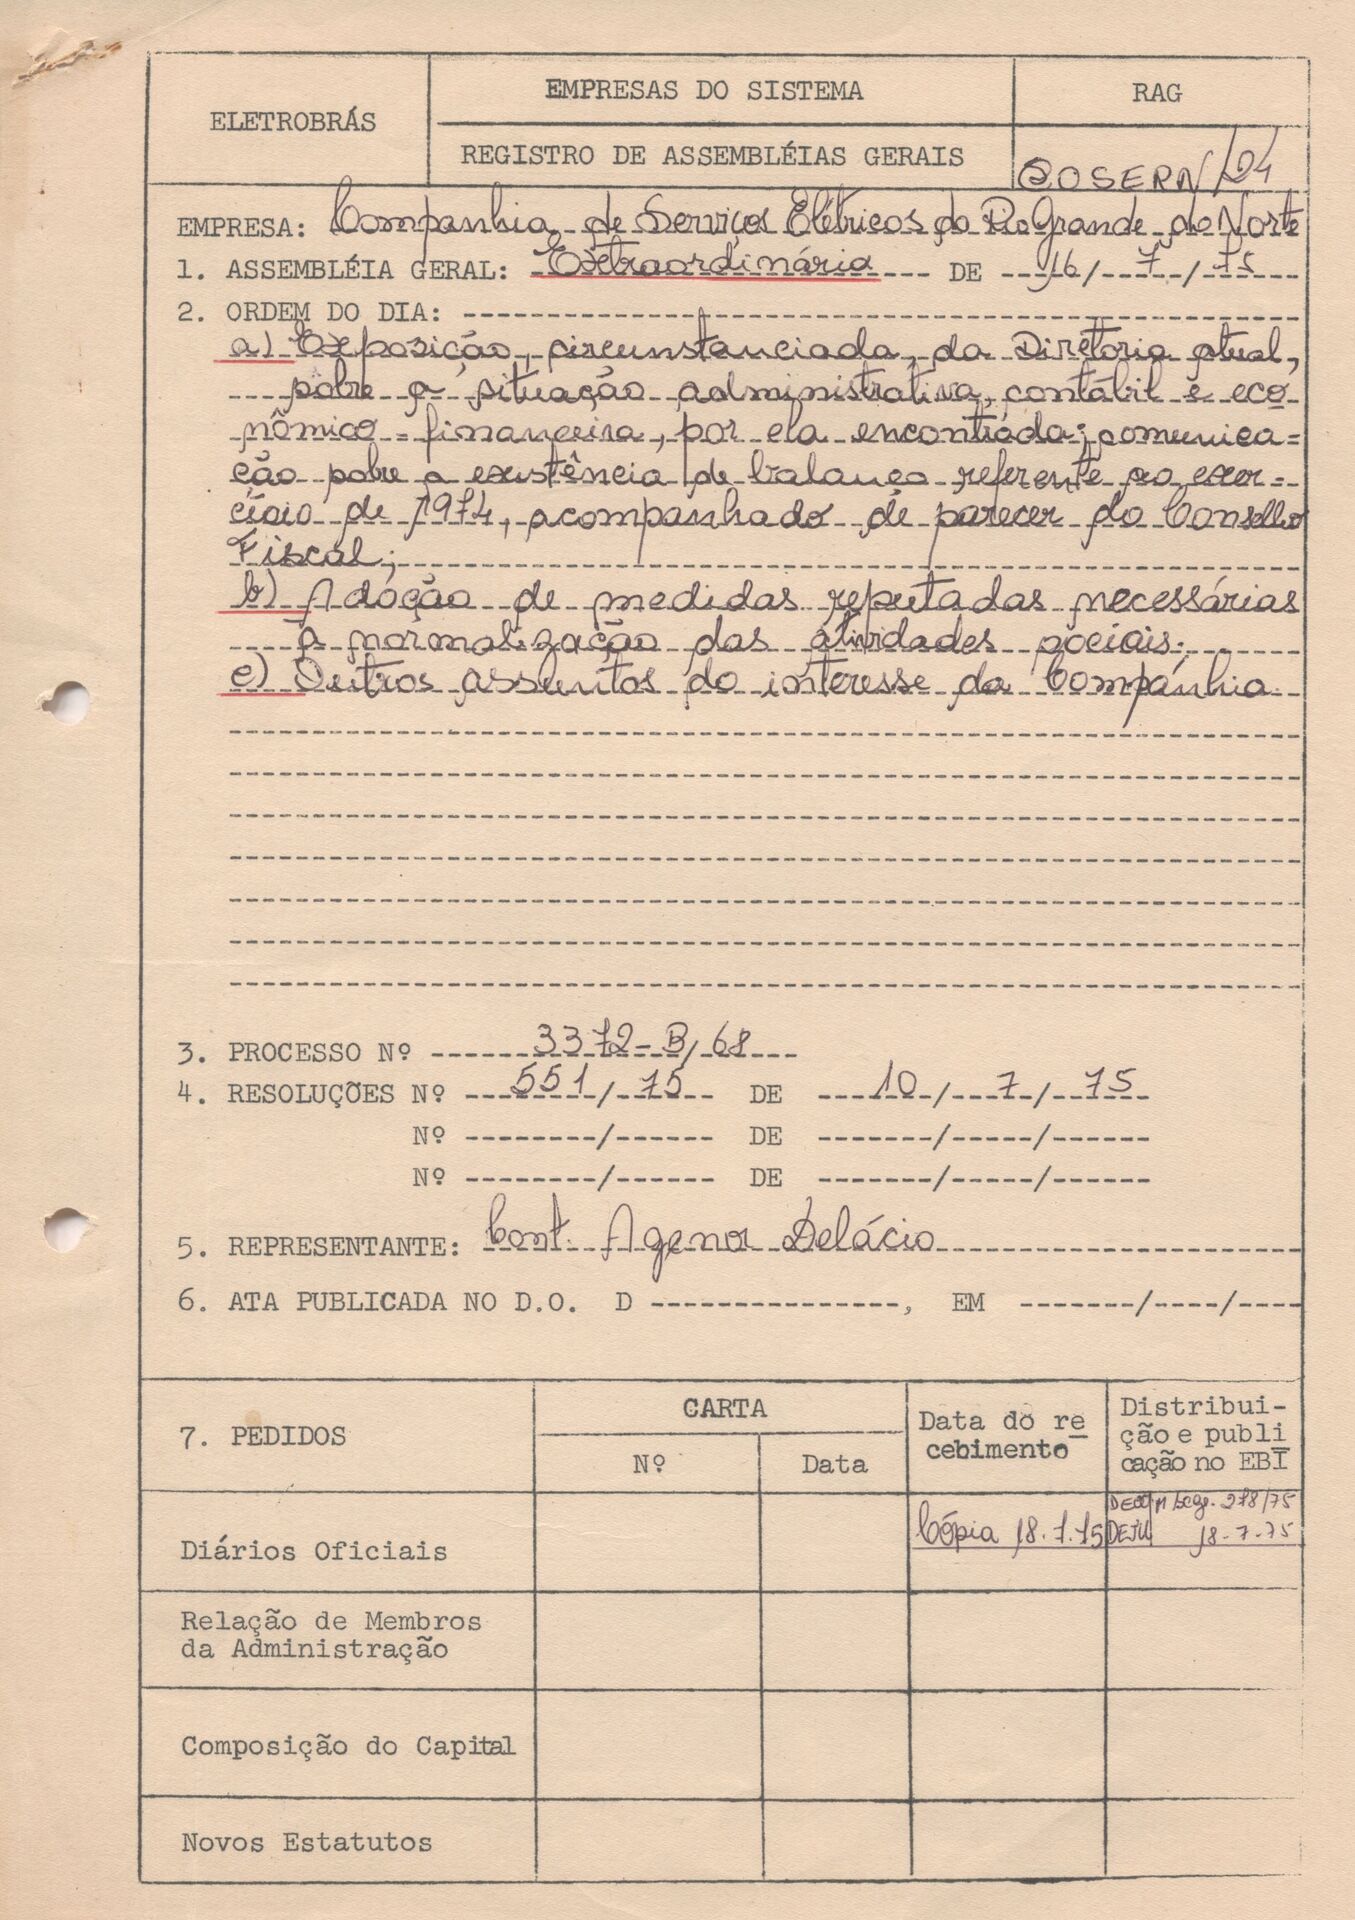 ELETROBRÁS
EMPRESAS DO SISTEMA
REGISTRO DE ASSEMBLÉIAS GERAIS
RAG
COSERN/24
EMPRESA: Companhia de Serviços Elétricos do Rio Grande do Norte
1. ASSEMBLÉIA GERAL: Extraordinária DE 16/7/75
2. ORDEM DO DIA:
a) Exposição, circunstanciada, da Diretoria atual,
sobre a situação administrativa, contábil e eco
nômico-financeira, por ela encontrada; comunica=
ção sobre a existência de balanço referente ao exer=
cício de 1974, acompanhado de parecer do Conselho
Fiscal;
b) Adoção de medidas reputadas necessárias
à normalização das atividades sociais;
c) Outros assuntos do interesse da Companhia
3. PROCESSO Nº 3372-B/68
4. RESOLUÇÕES Nº 551/75 DE 10/7/75
Nº / DE / /
Nº / DE / /
5. REPRESENTANTE: Cont. Agenor Delácio
6. ATA PUBLICADA NO D.O. D , EM / /
7. PEDIDOS
CARTA
Nº
Data
Data do re
cebimento
Distribui-
ção e publi
cação no EBI
Diários Oficiais
Cópia 18.7.75
278/75
DEJU 18-7-75
Relação de Membros
da Administração
Composição do Capital
Novos Estatutos